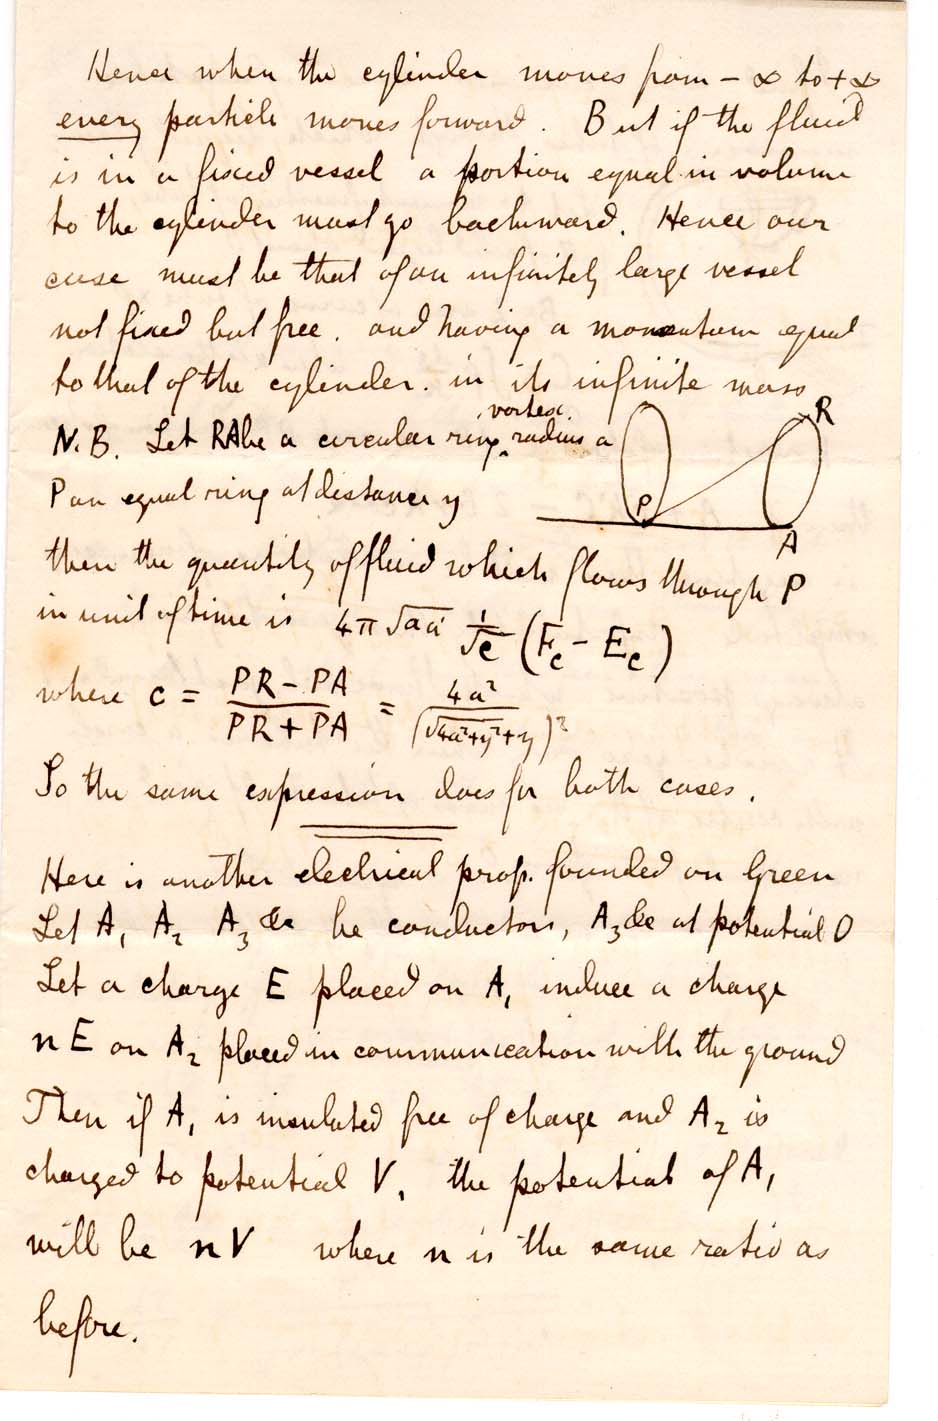 Hence when the cylinder moves from - ∝ to + ∝
every particle moves forward. But if the fluid
is in a fixed vessel a portion equal in volume
to the cylinder must go backward. Hence our
case must be that of an infinitely large vessel
not fixed but free. and having a momentum equal
to that of the cylinder. in its infinite mass
N.B. Let RA be a circular ring vortex. radius a
P an equal ring at distance y
P
R
A
then the quantity of fluid which flows through P
in unit of time is 4π √aa 1/√c (F_c - E_c)
where c = (PR - PA)/(PR + PA) = 4a²/(√4a²+y² + y)²
So the same expression does for both cases.
Here is another electrical prop. founded on Green
Let A₁ A₂ A₃ &c be conductors, A₃ &c at potential 0
Let a charge E placed on A₁ induce a charge
nE on A₂ placed in communication with the ground
Then if A₁ is insulated free of charge and A₂ is
charged to potential V, the potential of A₁
will be nV where n is the same ratio as
before.